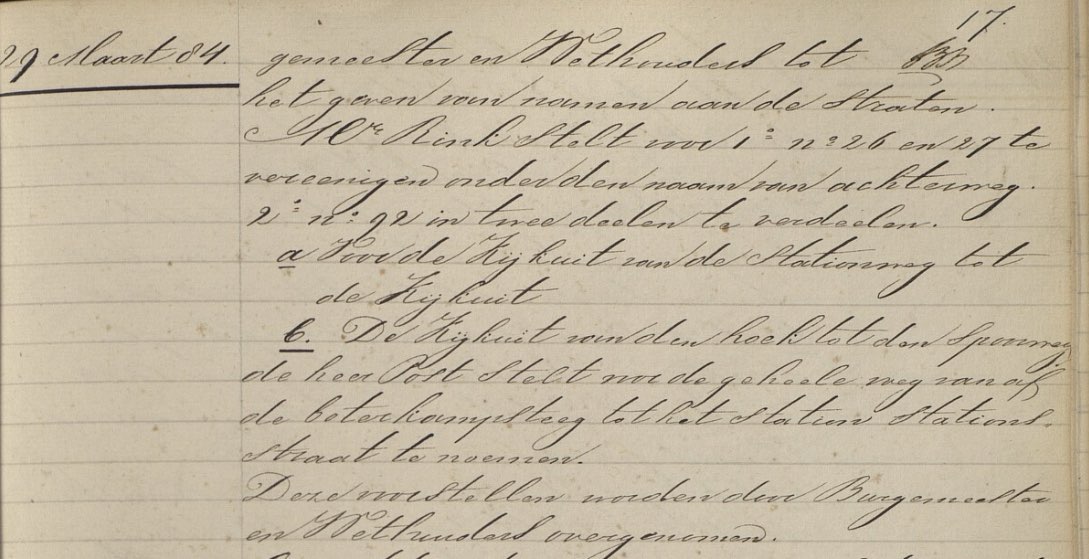 17.
29 Maart 84. gemeester en Wethouders tot
het geven van namen aan de straten.
Mr. Rink Stelt voor 1º nº 26 en 27 te
vereenigen onder den naam van achterweg.
2º nº 92 in twee deelen te verdeelen.
a Voor de Kijkuit van de Stationweg tot
de Kijkuit
b. De Kijkuit van den hoek tot den Spoorweg
de heer Post Stelt voor de geheele weg van af
de beterkampsteeg tot het Station Stations-
straat te noemen.
Deze voorstellen worden door Burgemeester
en Wethouders overgenomen.